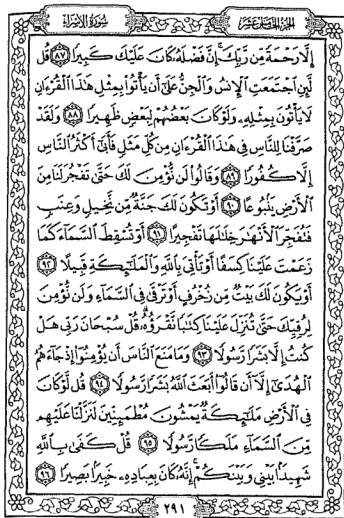 الجزء الخامس عشر
سورة الإسراء
إِلَّا رَحْمَةً مِّن رَّبِّكَ إِنَّ فَضْلَهُ كَانَ عَلَيْكَ كَبِيرًا ٨٧ قُل
لَّئِنِ اجْتَمَعَتِ الْإِنسُ وَالْجِنُّ عَلَى أَن يَأْتُوا بِمِثْلِ هَذَا الْقُرْءَانِ
لَا يَأْتُونَ بِمِثْلِهِ وَلَوْ كَانَ بَعْضُهُمْ لِبَعْضٍ ظَهِيرًا ٨٨ وَلَقَدْ
صَرَّفْنَا لِلنَّاسِ فِي هَذَا الْقُرْءَانِ مِن كُلِّ مَثَلٍ فَأَبَى أَكْثَرُ النَّاسِ
إِلَّا كُفُورًا ٨٩ وَقَالُوا لَن نُّؤْمِنَ لَكَ حَتَّى تَفْجُرَ لَنَا مِنَ
الْأَرْضِ يَنبُوعًا ٩٠ أَوْ تَكُونَ لَكَ جَنَّةٌ مِّن نَّخِيلٍ وَعِنَبٍ
فَتُفَجِّرَ الْأَنْهَرَ خِلَلَهَا تَفْجِيرًا ٩١ أَوْ تُسْقِطَ السَّمَاءَ كَمَا
زَعَمْتَ عَلَيْنَا كِسَفًا أَوْ تَأْتِيَ بِاللَّهِ وَالْمَلَئِكَةِ قَبِيلًا ٩٢
أَوْ يَكُونَ لَكَ بَيْتٌ مِّن زُخْرُفٍ أَوْ تَرْقَى فِي السَّمَاءِ وَلَن نُّؤْمِنَ
لِرُقِيِّكَ حَتَّى تُنَزِّلَ عَلَيْنَا كِتَبًا نَّقْرَؤُهُ قُلْ سُبْحَانَ رَبِّي هَلْ
كُنتُ إِلَّا بَشَرًا رَّسُولًا ٩٣ وَمَا مَنَعَ النَّاسَ أَن يُؤْمِنُوا إِذْ جَاءَهُمُ
الْهُدَى إِلَّا أَن قَالُوا أَبَعَثَ اللَّهُ بَشَرًا رَّسُولًا ٩٤ قُل لَّوْ كَانَ
فِي الْأَرْضِ مَلَئِكَةٌ يَمْشُونَ مُطْمَئِنِّينَ لَنَزَّلْنَا عَلَيْهِم
مِّنَ السَّمَاءِ مَلَكًا رَّسُولًا ٩٥ قُلْ كَفَى بِاللَّهِ
شَهِيدًا بَيْنِي وَبَيْنَكُمْ إِنَّهُ كَانَ بِعِبَادِهِ خَبِيرًا بَصِيرًا ٩٦
٢٩١